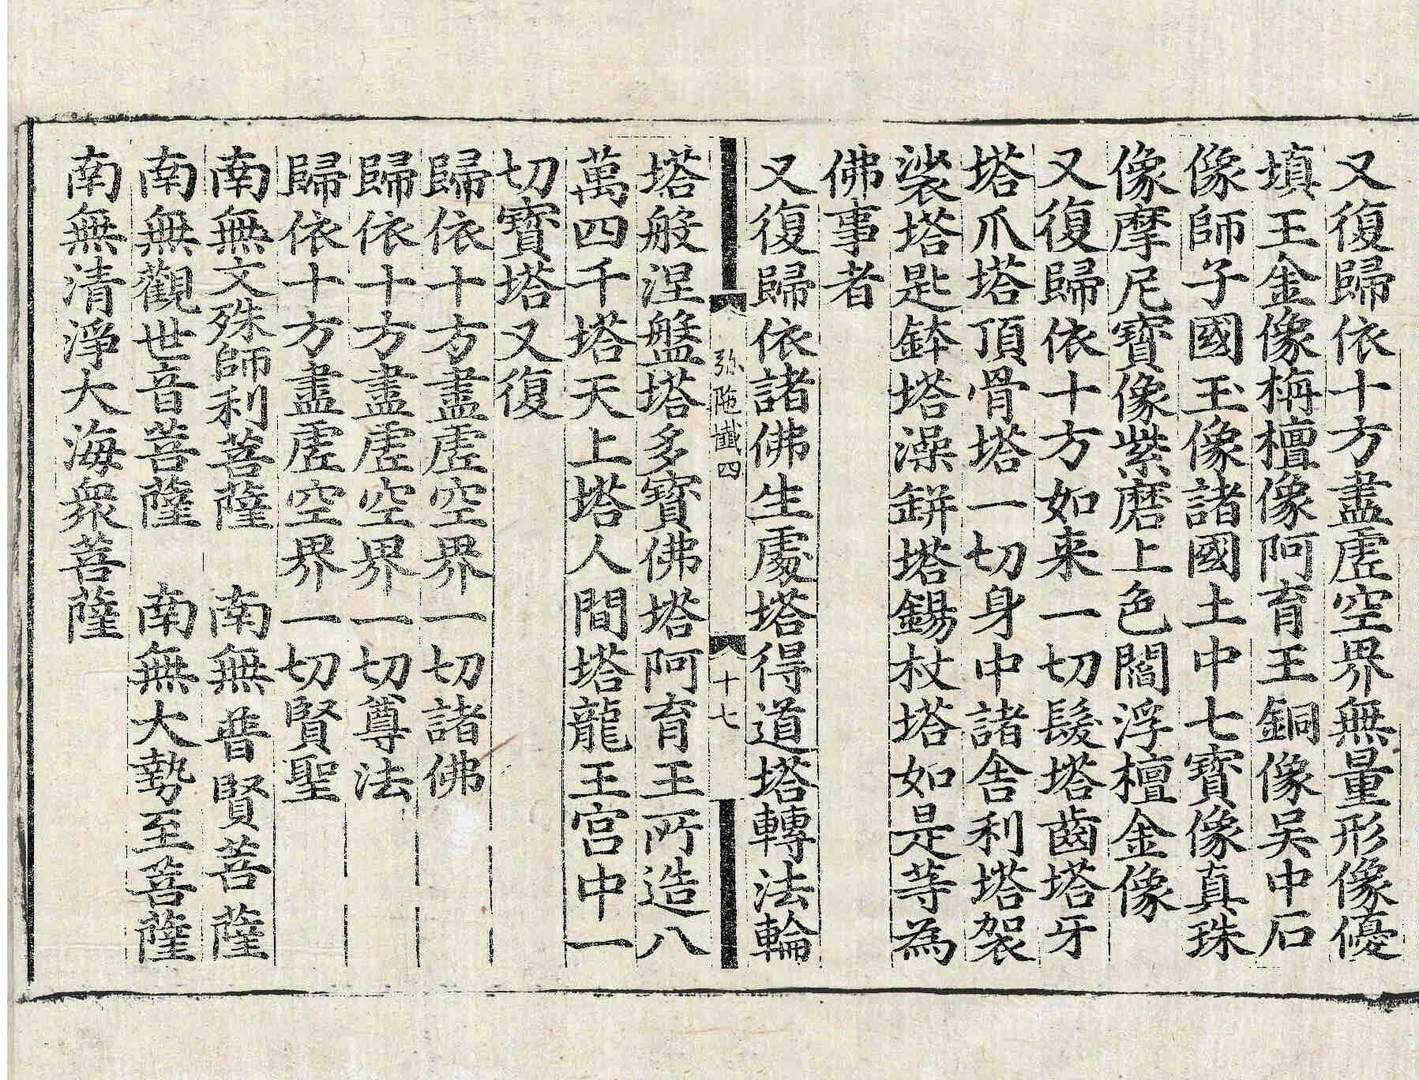 又復歸依十方盡虛空界無量形像優
填王金像栴檀像阿育王銅像吳中石
像師子國玉像諸國土中七寶像真珠
像摩尼寶像紫磨上色閻浮檀金像
又復歸依十方如来一切髮塔齒塔牙
塔爪塔頂骨塔一切身中諸舍利塔袈
裟塔匙鉢塔澡缾塔錫杖塔如是等為
佛事者
又復歸依諸佛生處塔得道塔轉法輪
弥陁懴四
十七
塔般涅盤塔多寶佛塔阿育王所造八
萬四千塔天上塔人間塔龍王宫中一
切寶塔又復
歸依十方盡虛空界一切諸佛
歸依十方盡虛空界一切尊法
歸依十方盡虛空界一切賢聖
南無文殊師利菩薩　南無普賢菩薩
南無觀世音菩薩　南無大勢至菩薩
南無清淨大海衆菩薩